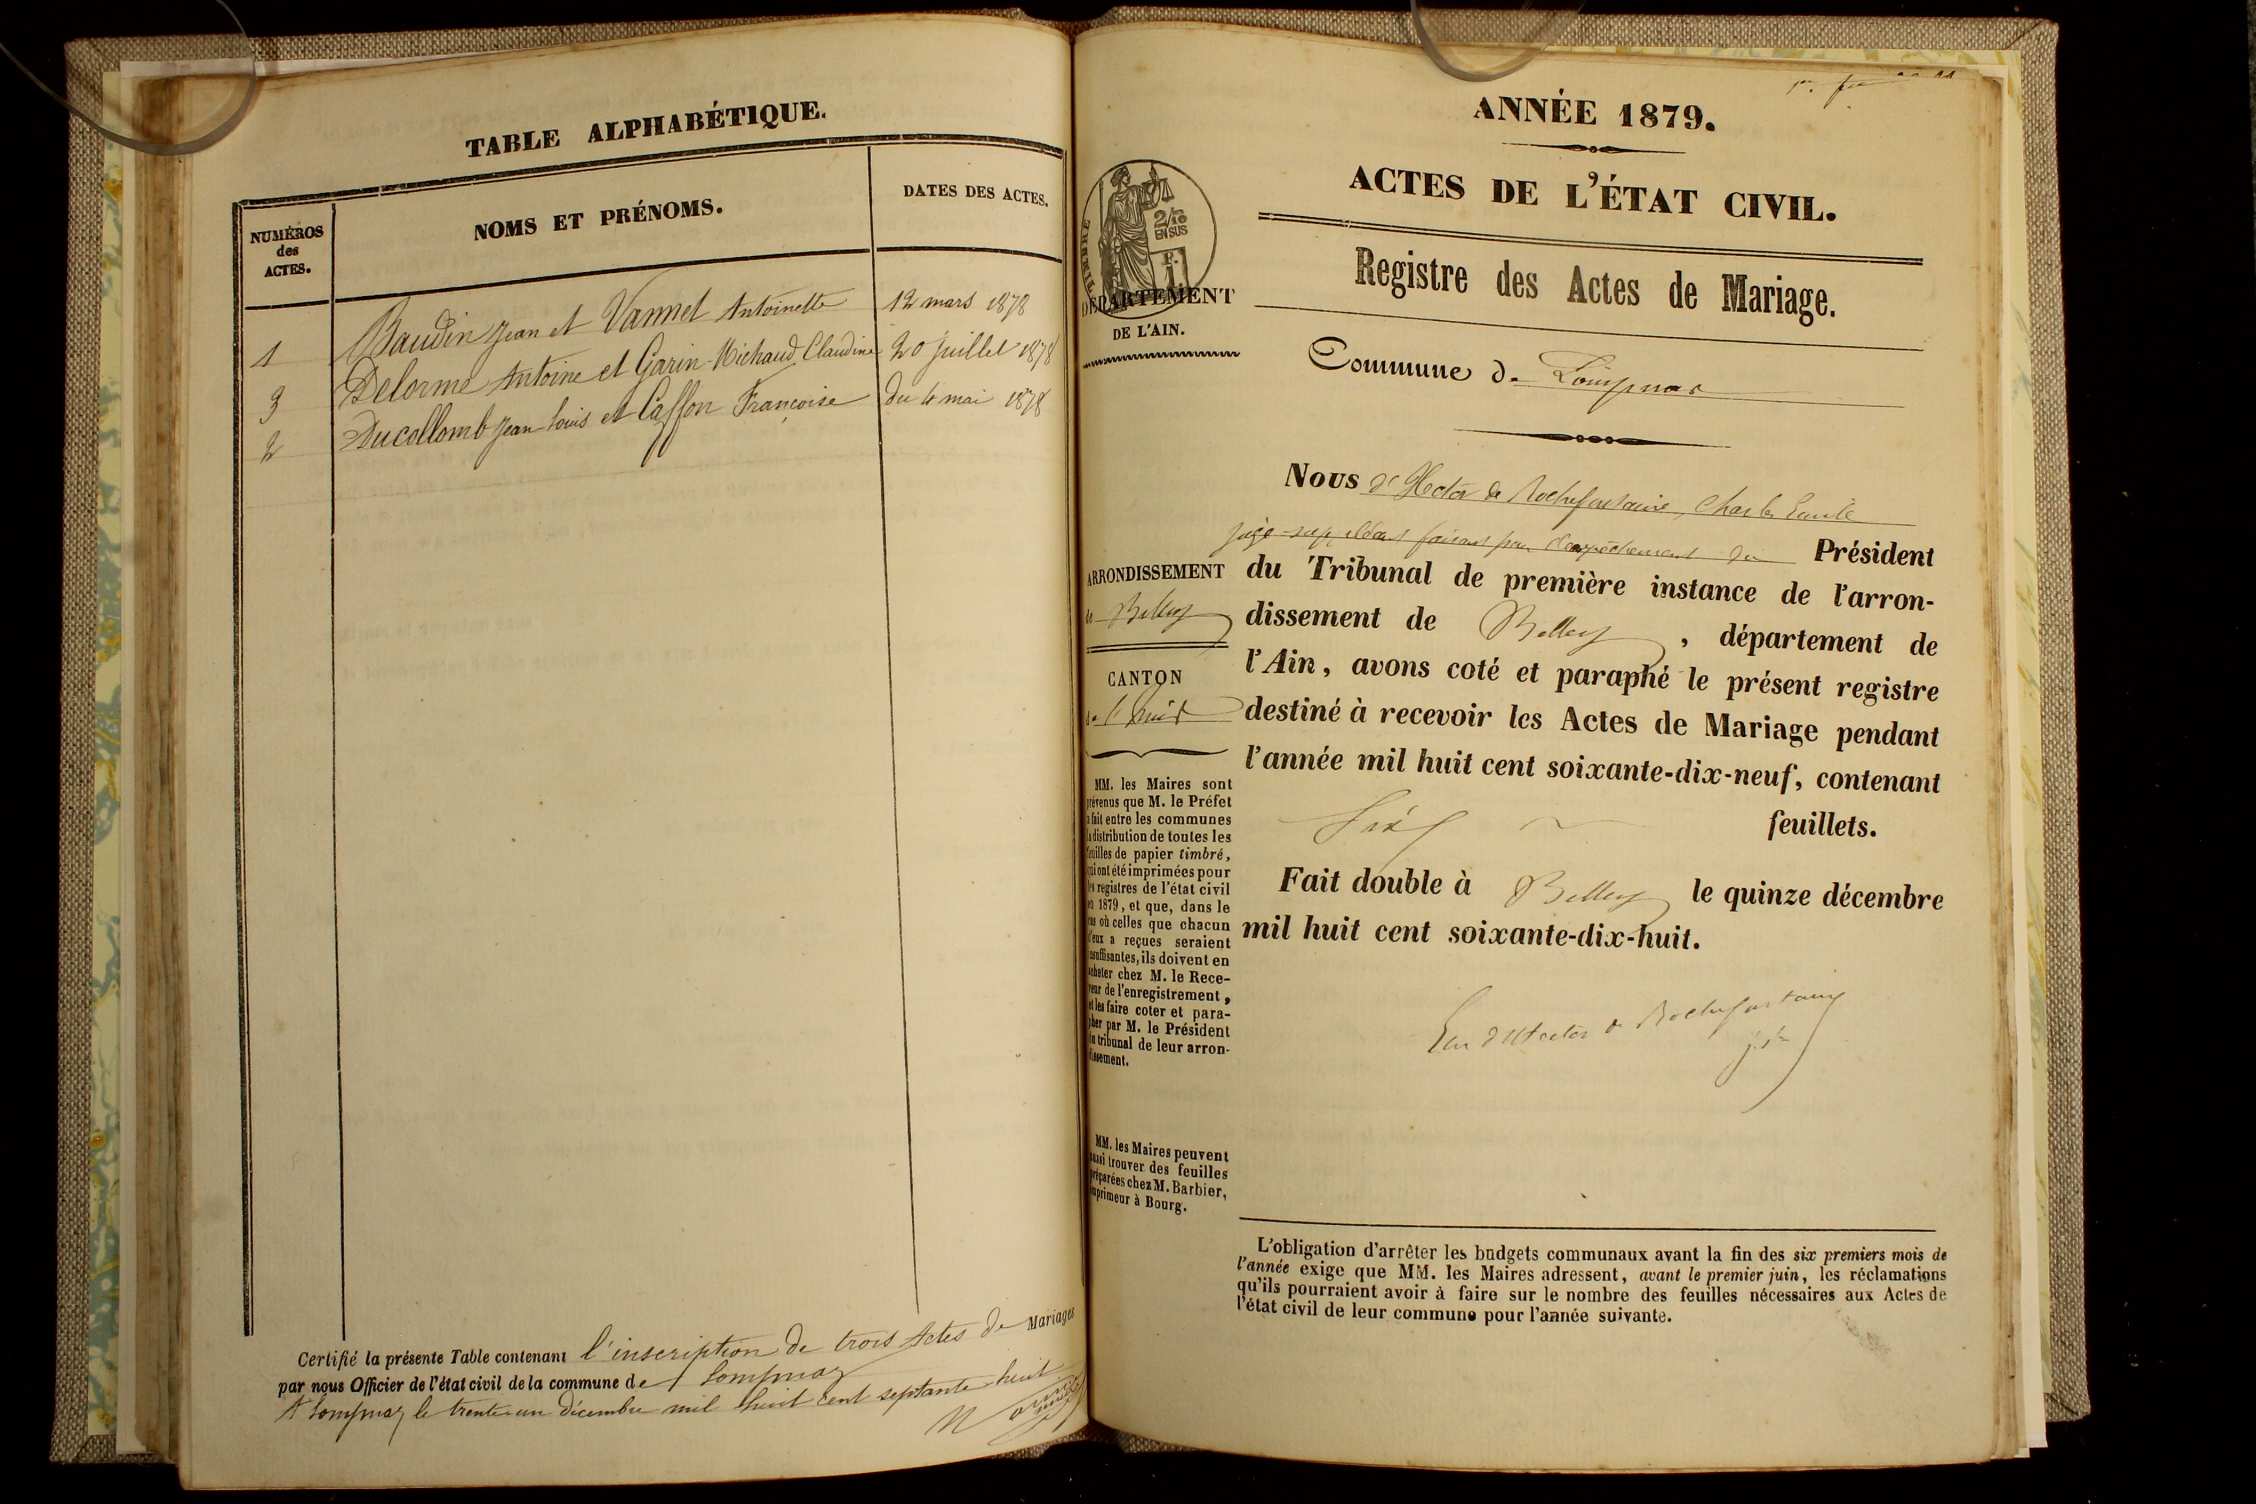 TABLE ALPHABÉTIQUE.
NUMÉROS
des
ACTES.
NOMS ET PRÉNOMS.
DATES DES ACTES.
1 Baudin Jean et Vannet Antoinette 12 mars 1878
3 Delorme Antoine et Garin-Michaud Claudine 20 juillet 1878
2 Ducollomb Jean Louis et Caffon Françoise du 4 mai 1878
Certifié la présente Table contenant l'inscription de trois Actes de Mariages
par nous Officier de l'état civil de la commune de Lompnaz
A Lompnaz le trente un décembre mil huit cent septante huit
ANNÉE 1879.
ACTES DE L'ÉTAT CIVIL.
Registre des Actes de Mariage.
TIMBRE
2/10
EN SUS
DÉPARTEMENT
DE L'AIN.
Commune de Lompnas
Nous d'Hector de Rochefontaine, Charles Emile
juge suppléant faisant pour l'empêchement du Président
du Tribunal de première instance de l'arron-
dissement de Belley, département de
l'Ain, avons coté et paraphé le présent registre
destiné à recevoir les Actes de Mariage pendant
l'année mil huit cent soixante-dix-neuf, contenant
feuillets.
Fait double à Belley le quinze décembre
mil huit cent soixante-dix-huit.
ARRONDISSEMENT
de Belley
CANTON
de Lhuis
MM. les Maires sont
prévenus que M. le Préfet
a fait entre les communes
la distribution de toutes les
feuilles de papier timbré,
qui ont été imprimées pour
les registres de l'état civil
en 1879, et que, dans le
cas où celles que chacun
d'eux a reçues seraient
insuffisantes, ils doivent en
acheter chez M. le Rece-
veur de l'enregistrement,
et les faire coter et para-
pher par M. le Président
du tribunal de leur arron-
dissement.
MM. les Maires peuvent
aussi trouver des feuilles
préparées chez M. Barbier,
imprimeur à Bourg.
L'obligation d'arrêter les budgets communaux avant la fin des six premiers mois de
l'année exige que MM. les Maires adressent, avant le premier juin, les réclamations
qu'ils pourraient avoir à faire sur le nombre des feuilles nécessaires aux Actes de
l'état civil de leur commune pour l'année suivante.